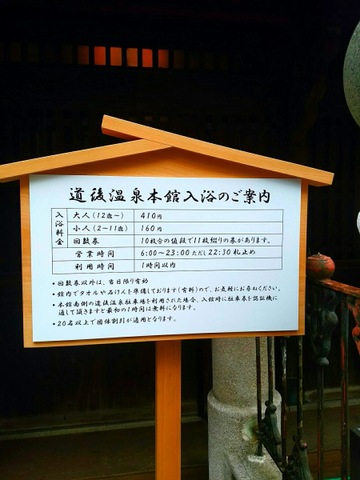 道後温泉本館入浴のご案内
入浴料金
大人(12歳〜) 410円
小人(2〜11歳) 160円
回数券 10枚分の値段で11枚綴りの券があります。
営業時間 6:00〜23:00 ただし22:30札止め
利用時間 1時間以内
・回数券以外は、当日限り有効
・館内でタオルや石けんを準備しております(有料)ので、お気軽にお尋ねください。
・本館南側の道後温泉駐車場を利用された場合、入館時に駐車券を認証機に
通して頂きますと最初の1時間は無料になります。
・20名以上で団体割引が適用となります。